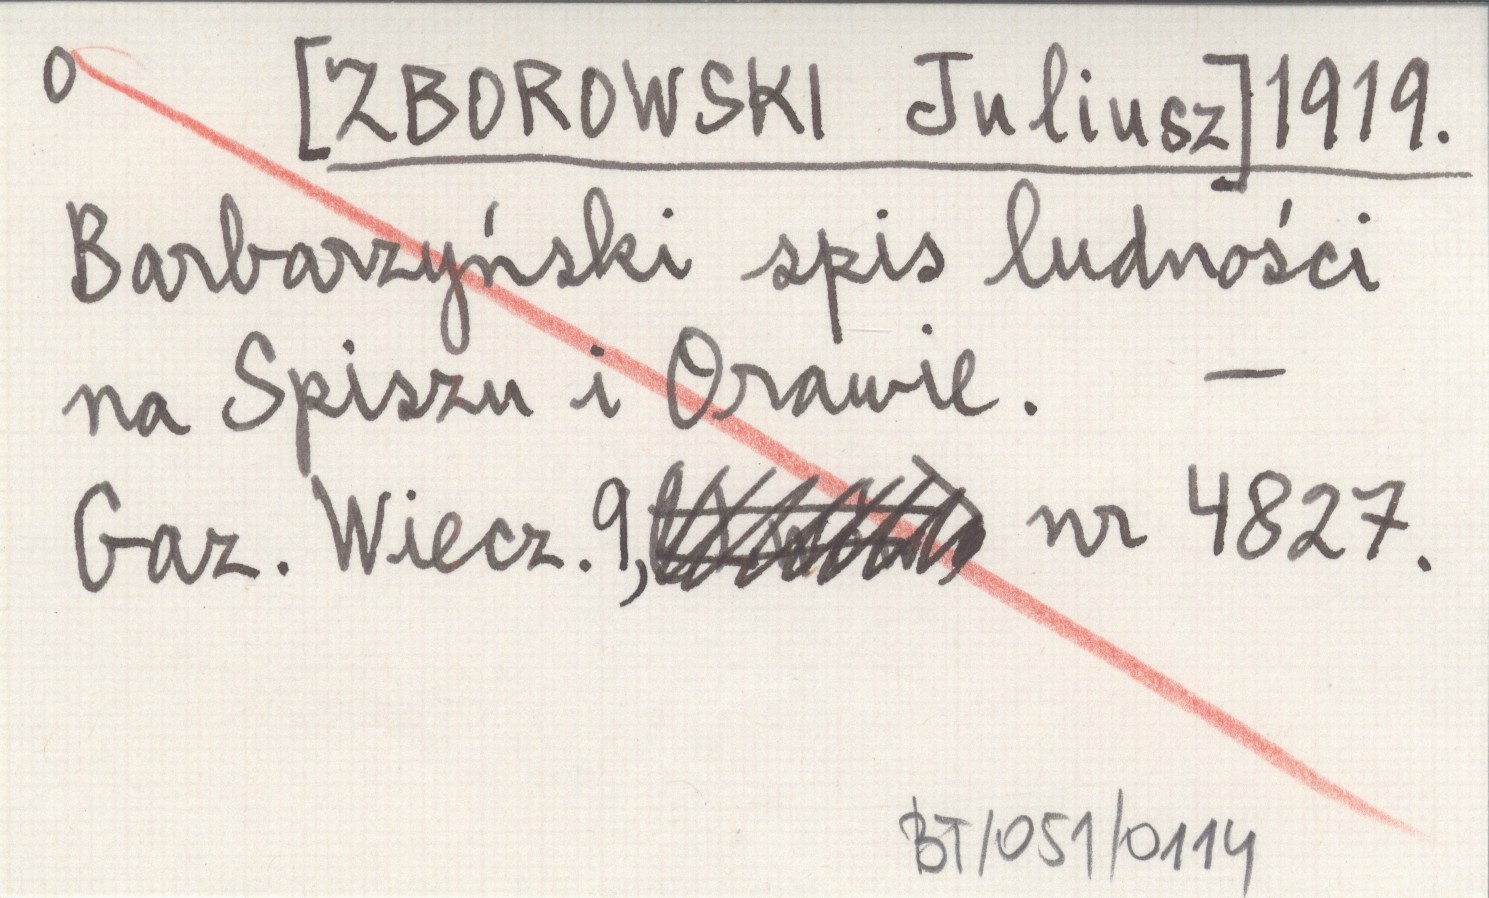 0 [ZBOROWSKI Juliusz] 1919.
Barbarzyński spis ludności
na Spiszu i Orawie. —
Gaz. Wiecz. 9, nr 4827.
BT/051/0114